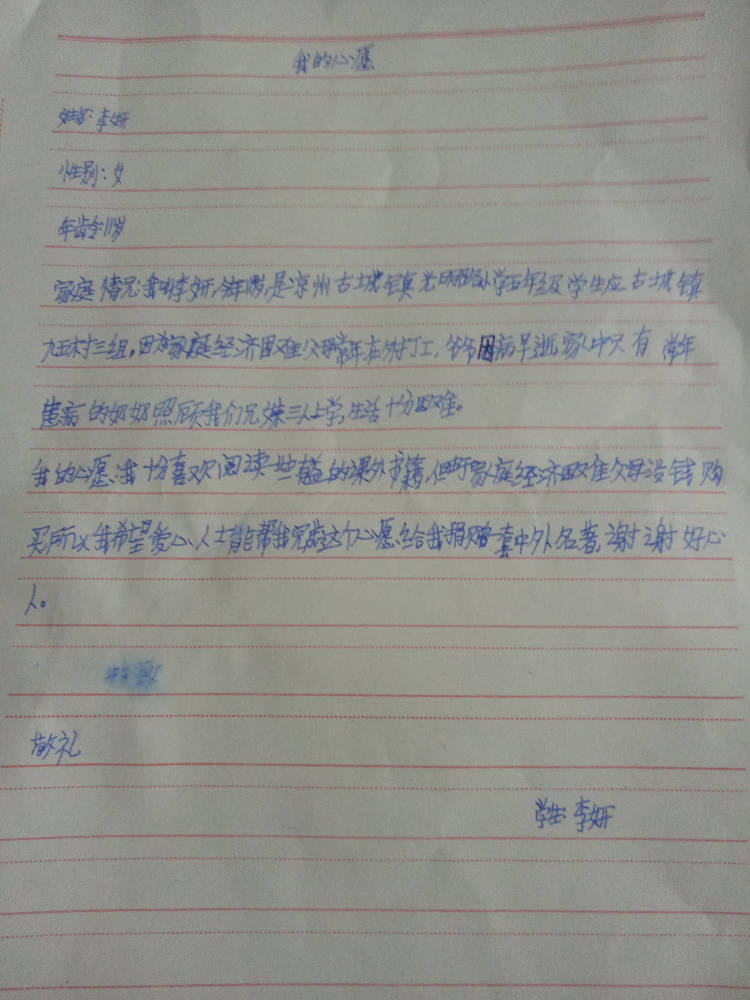 我的心愿
姓名:李妍
性别:女
年龄:11岁
家庭情况:我叫李妍,今年11岁,是凉州古城镇光明小学五年级学生应古城镇
九五村三组。因为家庭经济困难父母常年在外打工,爷爷因病早逝家中只有常年
患病的奶奶照顾我们兄妹三人上学,生活十分困难。
我的心愿:我十分喜欢阅读一些有益的课外书籍,但由于家庭经济困难父母没钱购
买所以我希望爱心人士能帮我完成这个心愿给我捐赠一套中外名著,谢谢好心
人。
敬礼
学生:李妍